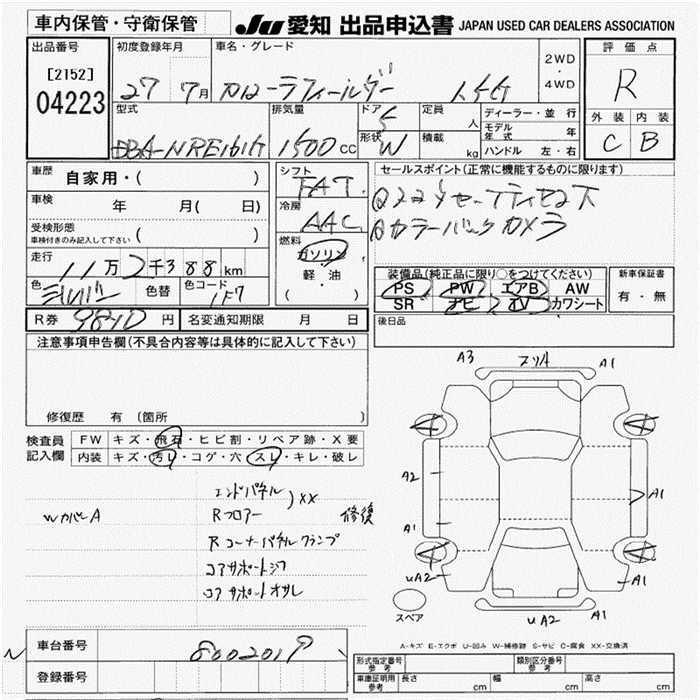 車内保管・守衛保管
JU 愛知 出品申込書 JAPAN USED CAR DEALERS ASSOCIATION
出品番号 初度登録年月 車名・グレード 2WD ・ 4WD 評価点
[2152]
04223
27 7月 カローラフィールダー 1.5G R
型式 排気量 ドア 5 定員 人 ディーラー・並行 外装 内装
DBA-NRE161G 1500cc 形状 W 積載 kg モデル年式 年 C B
ハンドル 左・右
車歴 自家用・( ) シフト FAT セールスポイント(正常に機能するものに限ります)
車検 年 月( 日) 冷房 AAC
受検形態 車検付きのみ記入して下さい ( )
カラーバックカメラ
走行 11万2千388km 燃料 ガソリン・軽・油 ( )
色 シルバー 色替 色コード 1F7
装備品(純正品に限り○をつけてください) 新車保証書
PS PW エアB AW 有・無
SR ナビ TV カワシート
R券 9840円 名変通知期限 月 日 後日品
注意事項申告欄(不具合内容等は具体的に記入して下さい)
修復歴 有 (箇所 )
検査員記入欄 FW キズ・飛石・ヒビ割・リペア跡・X要
内装 キズ・汚レ・コゲ・穴・スレ・キレ・破レ
A3 スリA A1
A2 A1
A1
UA2 A1
UA2 A1
スペア
WカバーA
エンドパネル
Rフロアー )XX 修復
Rコーナーパネルクランプ
コアサポートシワ
コアサポートオサレ
A-キズ E-エクボ U-凹み W-補修跡 S-サビ C-腐食 XX-交換済
車台番号 8002019
登録番号
形式指定番号 参考 類別区分番号 参考
車庫証明用 参考 長さ cm 幅 cm 高さ cm